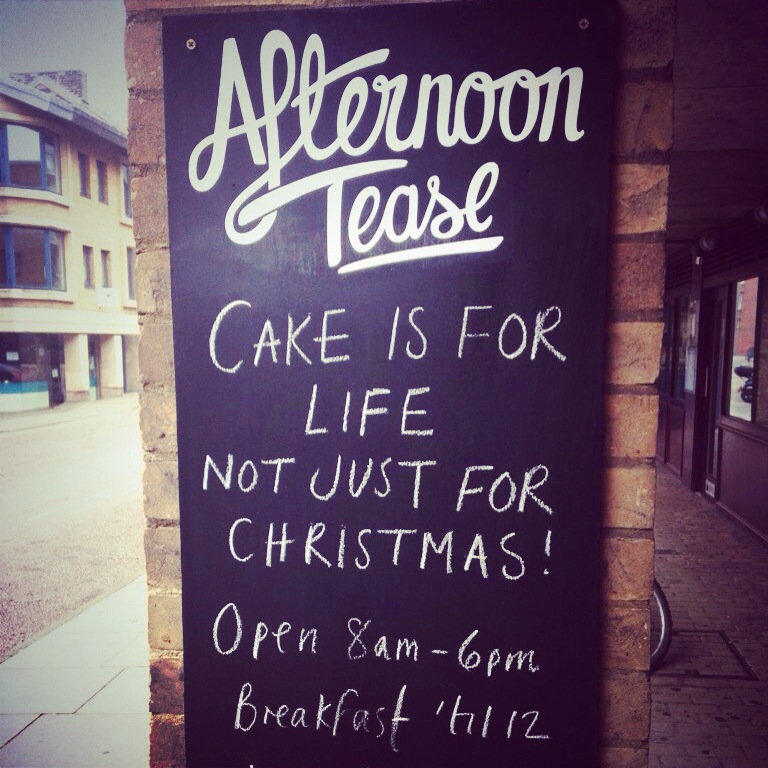 Afternoon
Tease
CAKE IS FOR
LIFE
NOT JUST FOR
CHRISTMAS!
Open 8am-6pm
Breakfast 'til 12